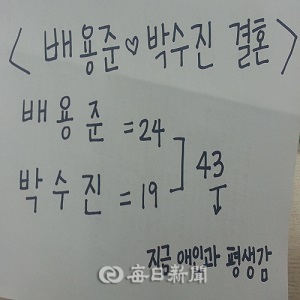 < 배용준♡박수진 결혼 >
배용준 =24
박수진 =19
] 43
↓
지금 애인과 평생감
每日新聞